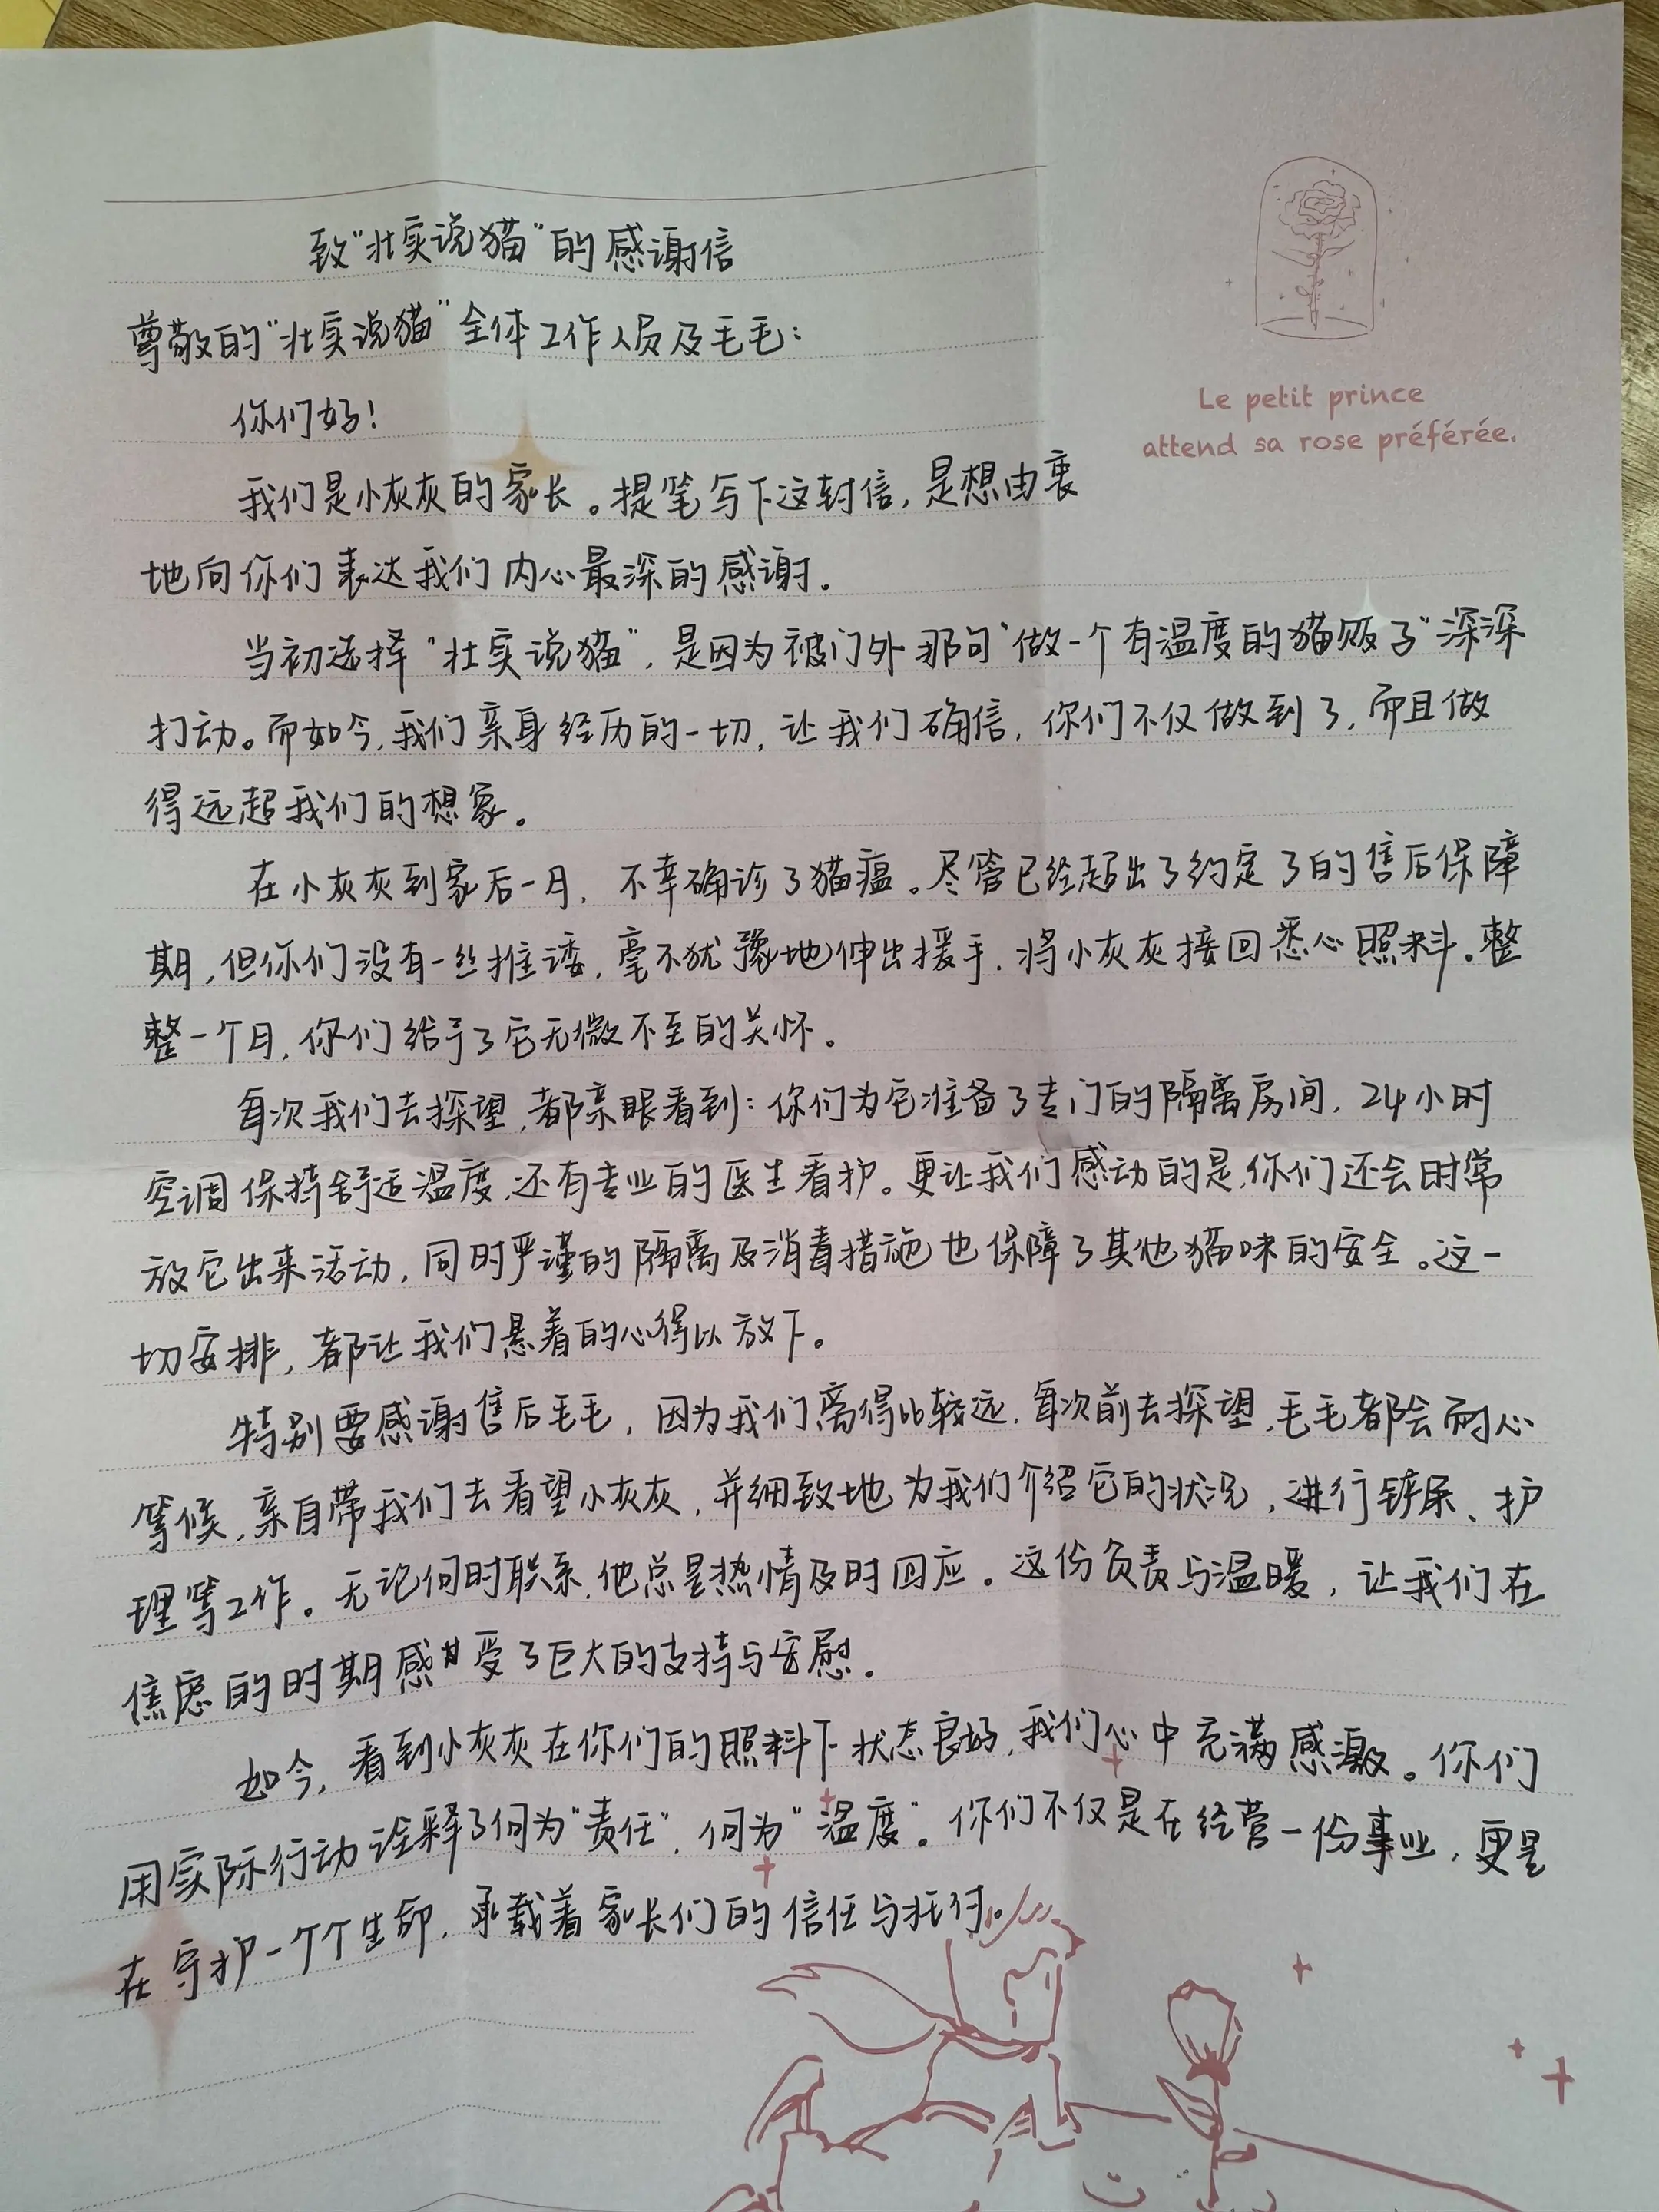 致“壮实说猫”的感谢信
尊敬的“壮实说猫”全体工作人员及毛毛：
Le petit prince
attend sa rose préférée.
你们好！
我们是小灰灰的家长。提笔写下这封信，是想由衷
地向你们表达我们内心最深的感谢。
当初选择“壮实说猫”，是因为被门外那句“做一个有温度的猫贩子”深深
打动。而如今，我们亲身经历的一切，让我们确信，你们不仅做到了，而且做
得远超我们的想象。
在小灰灰到家后一月，不幸确诊了猫瘟。尽管已经超出了约定了的售后保障
期，但你们没有一丝推诿，毫不犹豫地伸出援手，将小灰灰接回悉心照料。整
整一个月，你们给予了它无微不至的关怀。
每次我们去探望，都亲眼看到：你们为它准备了专门的隔离房间，24小时
空调保持舒适温度，还有专业的医生看护。更让我们感动的是，你们还会时常
放它出来活动，同时严谨的隔离及消毒措施也保障了其他猫咪的安全。这一
切安排，都让我们悬着的心得以放下。
特别要感谢售后毛毛，因为我们离得比较远，每次前去探望，毛毛都会耐心
等候，亲自带我们去看望小灰灰，并细致地为我们介绍它的状况，进行铲屎、护
理等工作。无论何时联系，他总是热情及时回应。这份负责与温暖，让我们在
焦虑的时期感受了巨大的支持与安慰。
如今，看到小灰灰在你们的照料下状态良好，我们心中充满感激。你们
用实际行动诠释了何为“责任”，何为“温度”。你们不仅是在经营一份事业，更是
在守护一个个生命，承载着家长们的信任与托付。